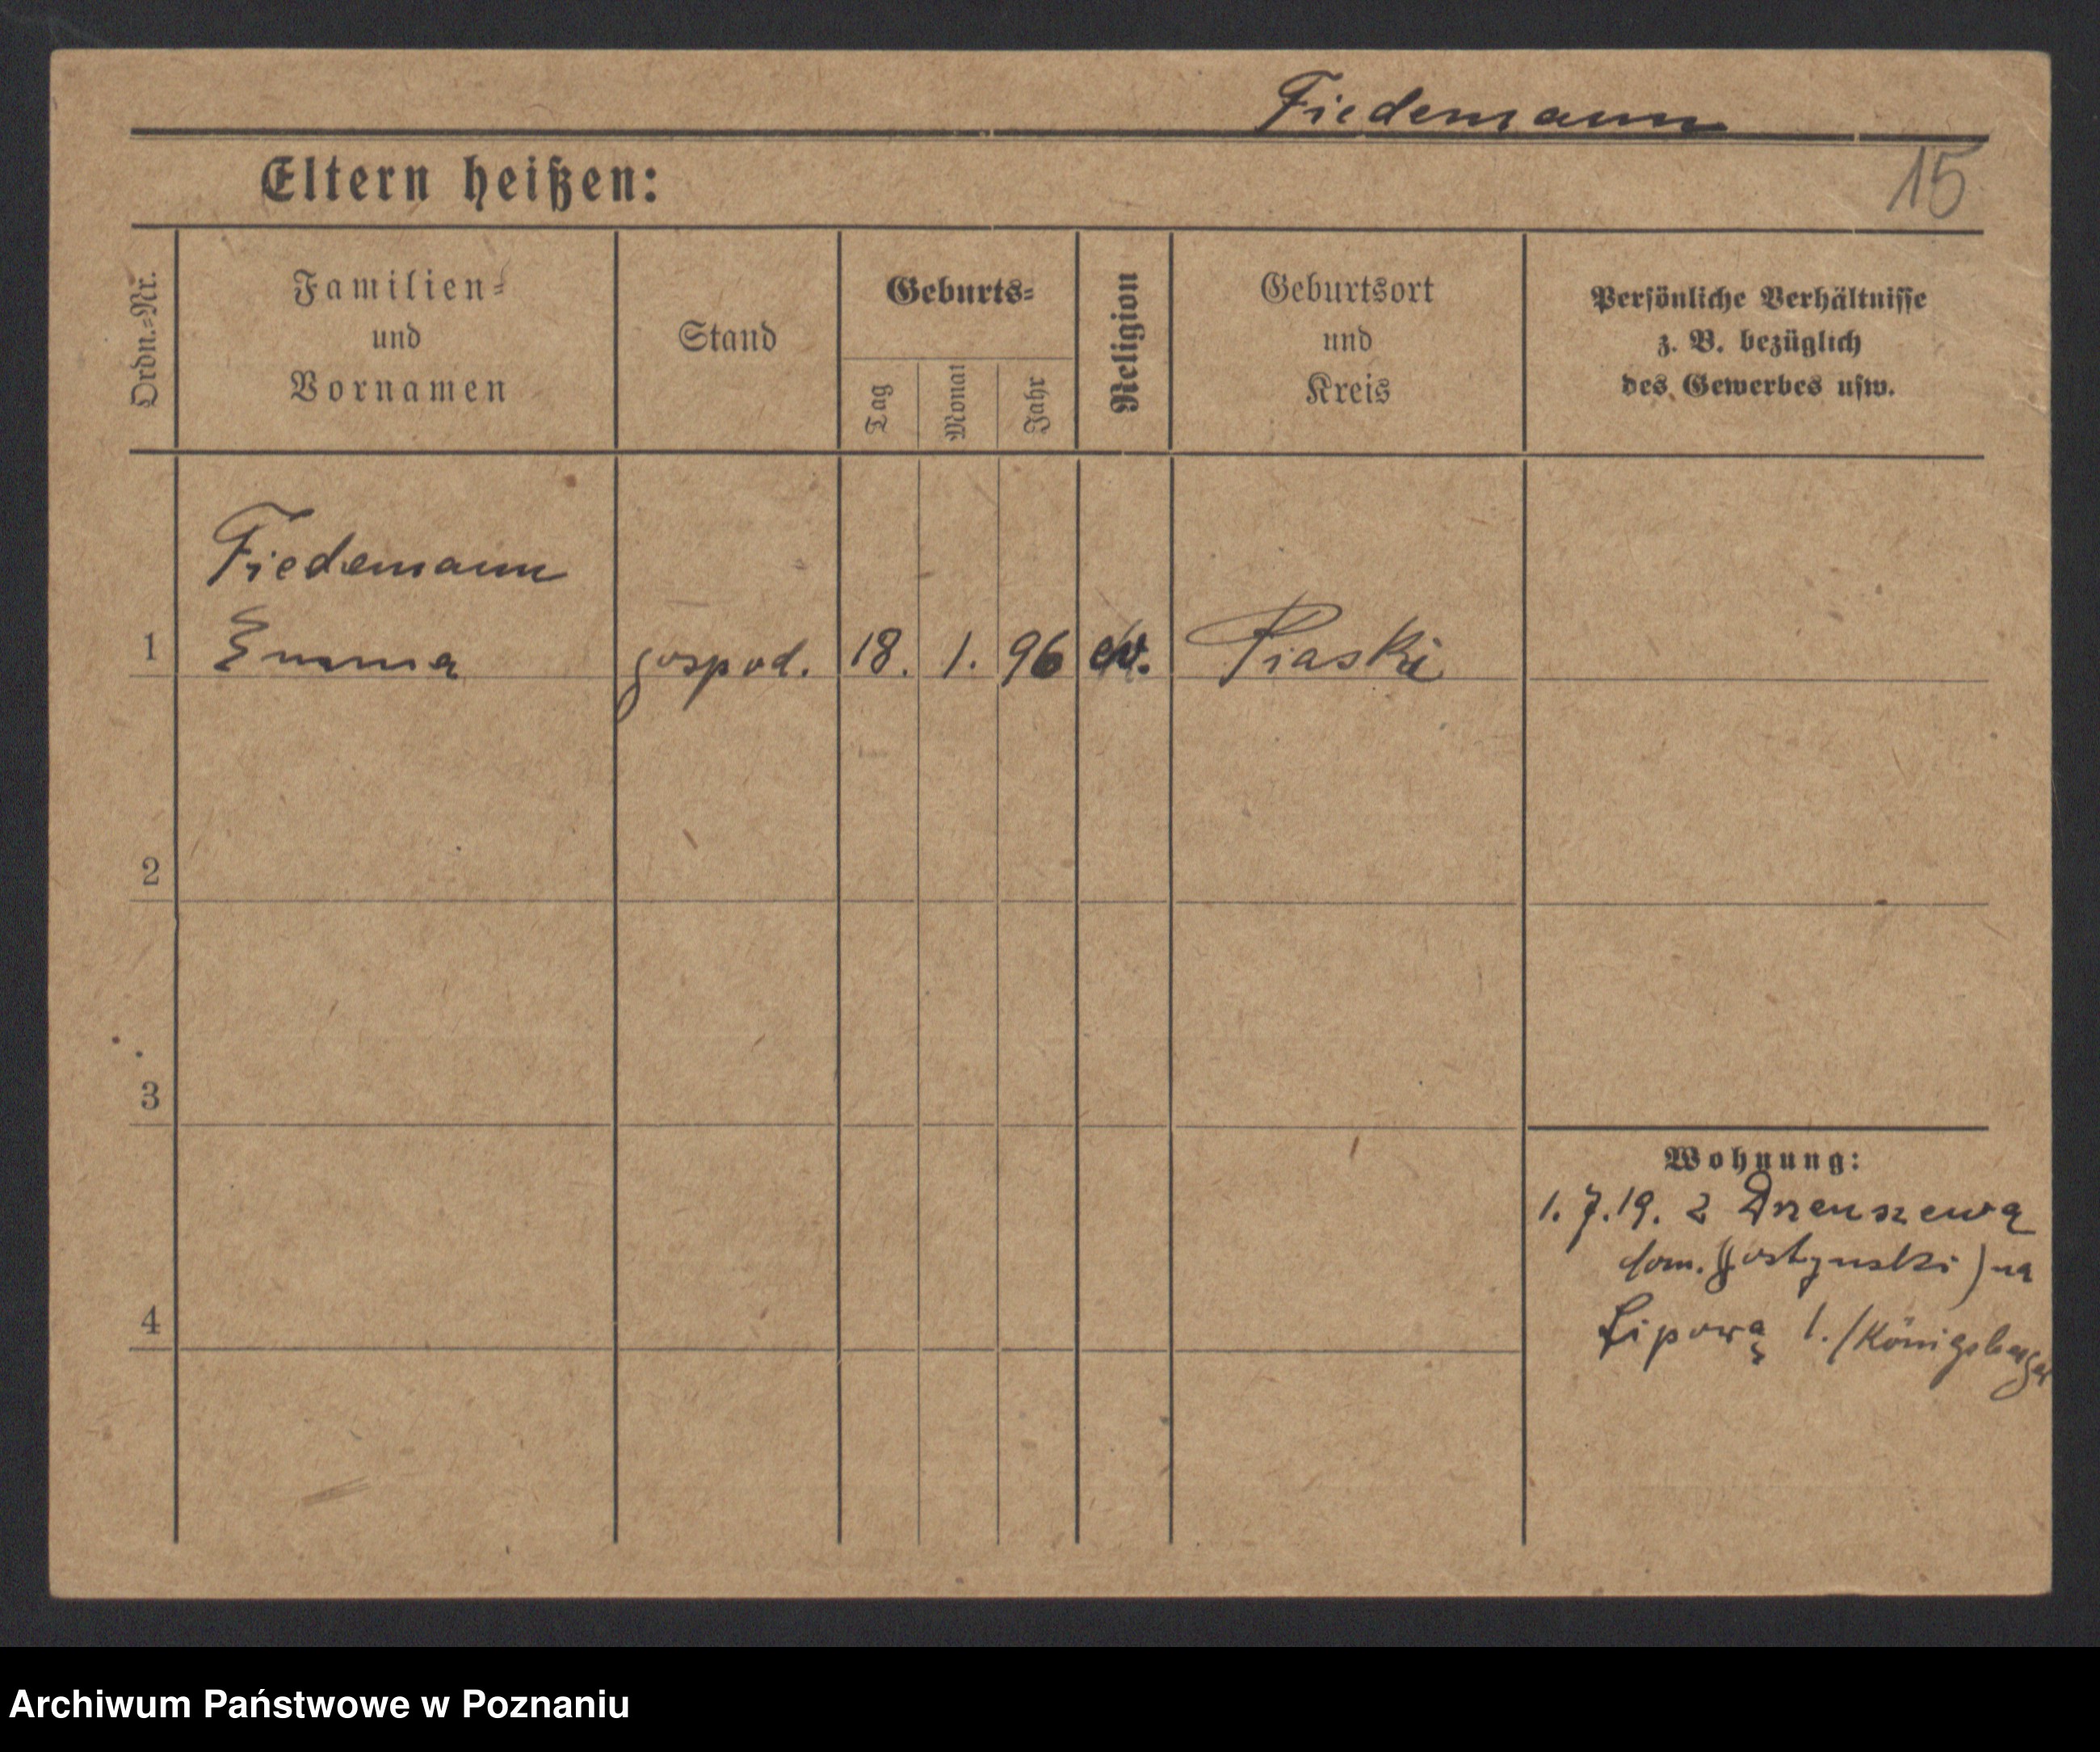 Fiedemann
Eltern heißen:
15
Ordn.=Nr.
Familien=
und
Vornamen
Stand
Geburts=
Tag
Monat
Jahr
Religion
Geburtsort
und
Kreis
Persönliche Verhältnisse
z. B. bezüglich
des Gewerbes usw.
Fiedemann
1 Emma gospod. 18. 1. 96 ev. Piaski
2
3
4
Wohnung:
1. 7. 19. z
dom. Gostynski) na
Lipową 1. /Königsberger
Archiwum Państwowe w Poznaniu